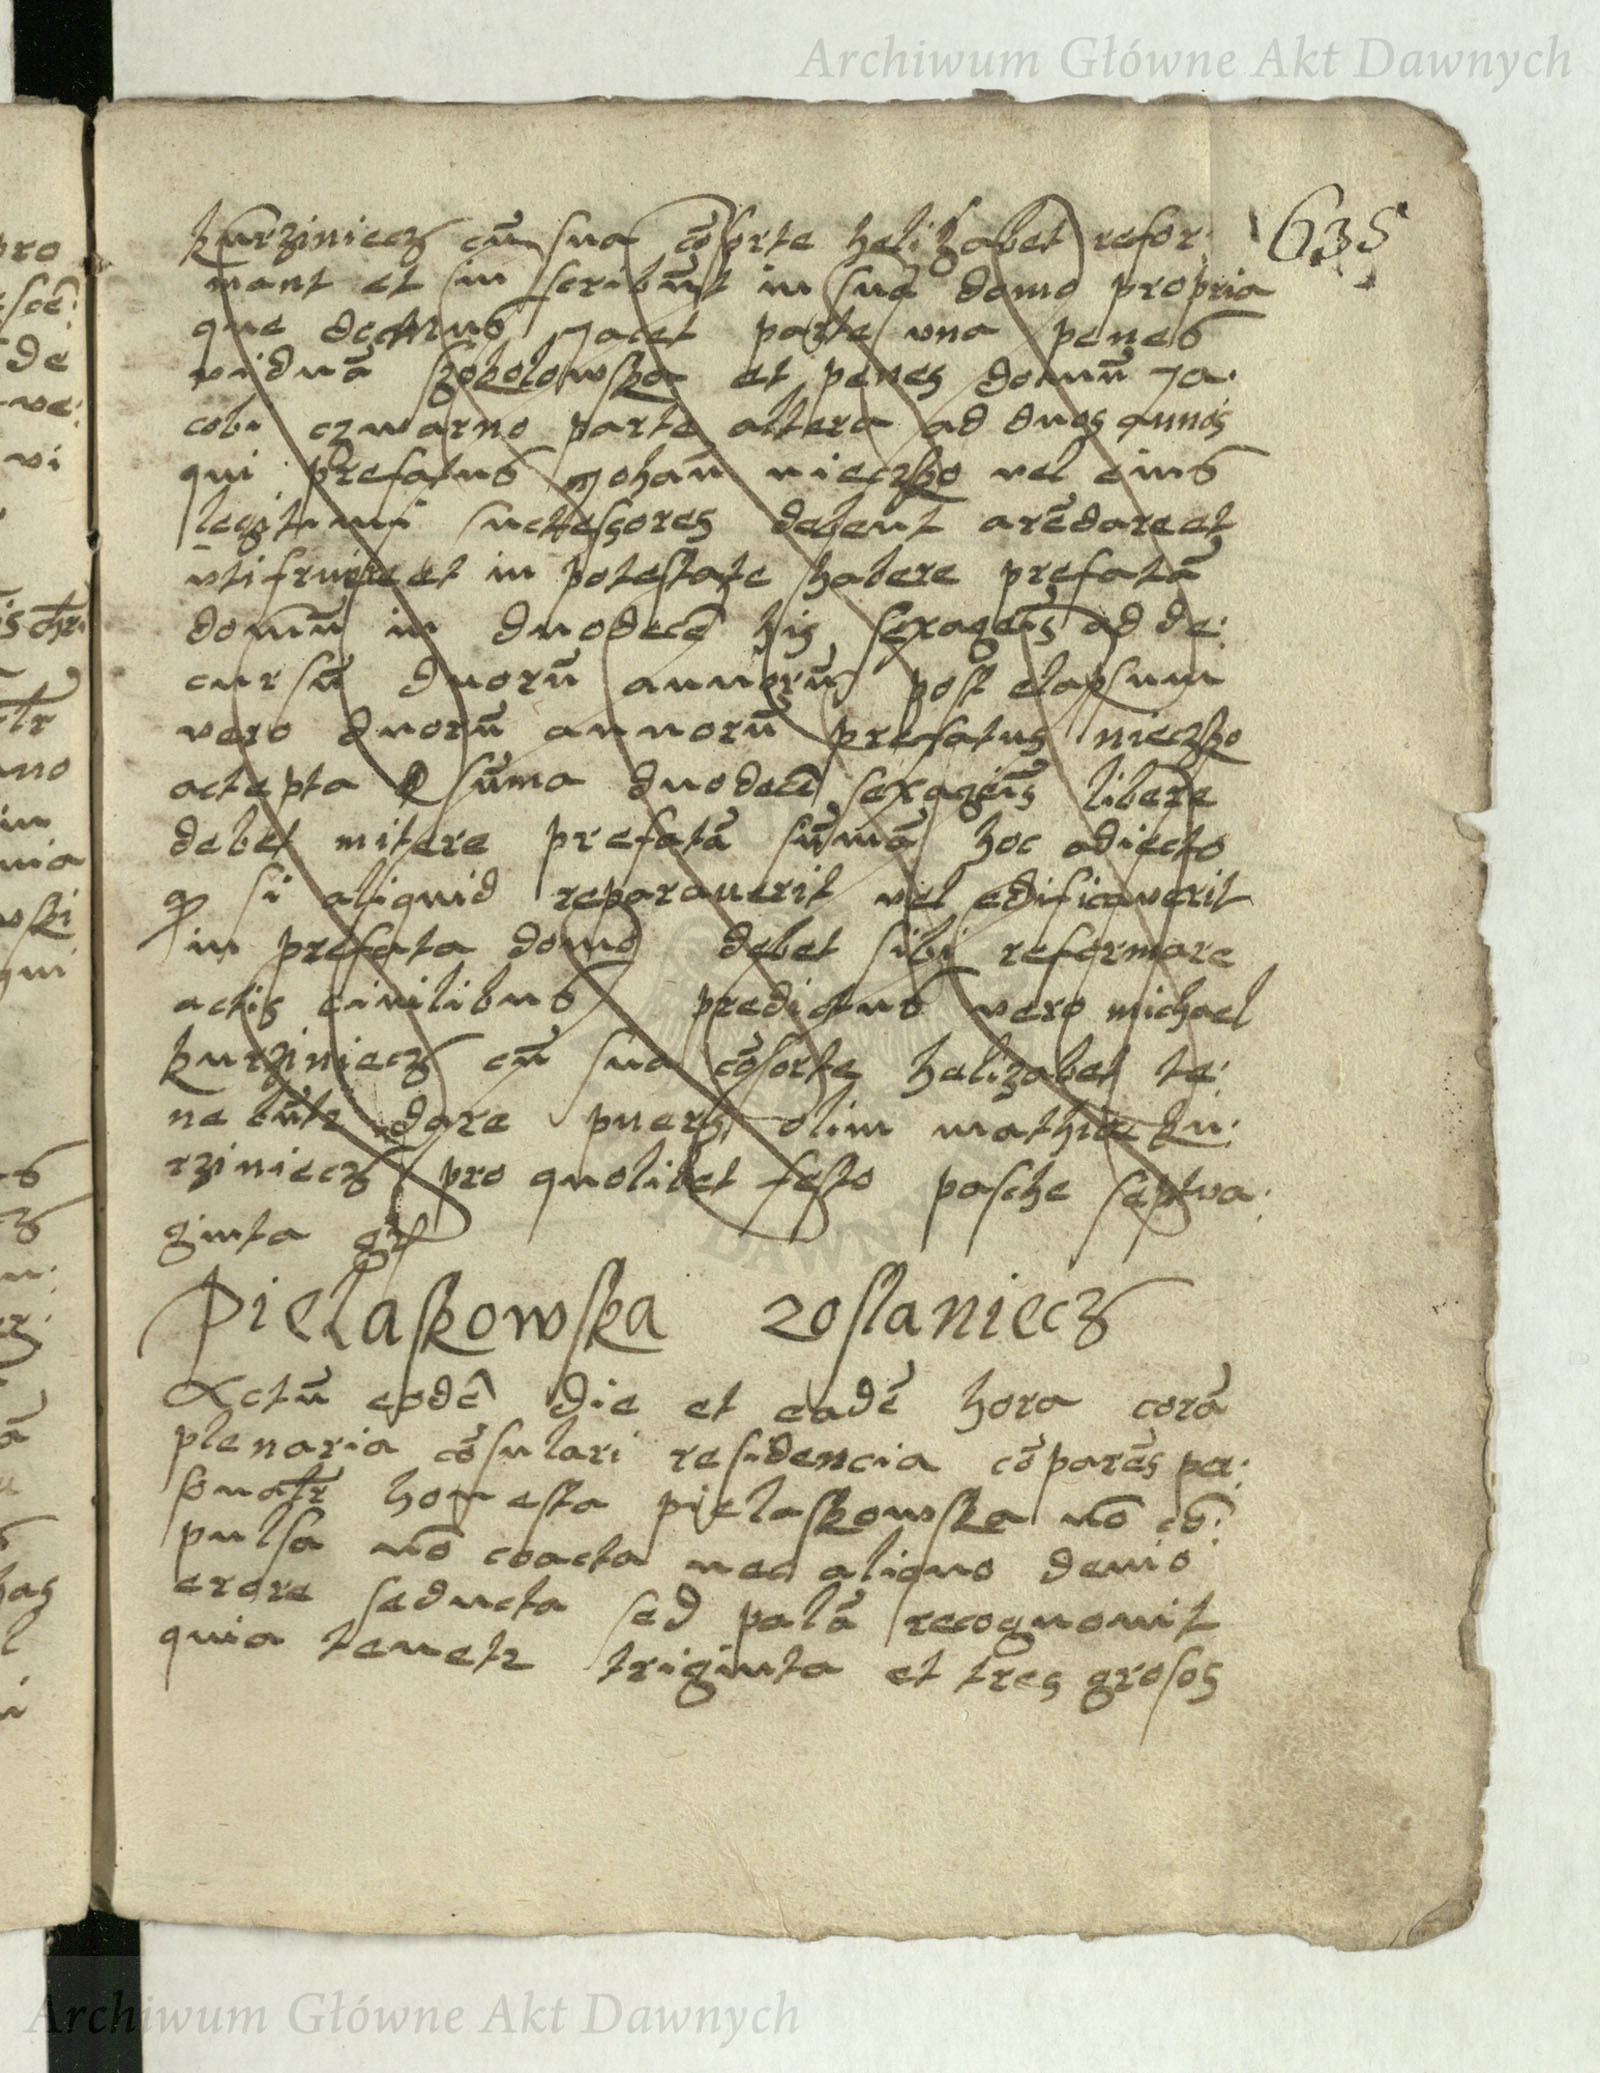 Archiwum Główne Akt Dawnych
635
kurziniecz cū sua cōsorte helizabet refor:
mant et in scribūt in sua domo propria
que jacet parte vna penes
viduā et penes domū Ja:
cobi czwarno parte altera ad duos annos
qui prefatus Johan nieczko vel eius
legitimi successores debent arēdare et
vtifruere et in potestate habere prefatā
domū in duodecē his sexagēis ad de:
cursū duorū annorū post elapsum
vero duorū annorū prefatus nieczko
accepta suma duodecē sexagēis libere
debet mitere prefatā sūmā hoc adiecto
q si aliquid reparauerit vel edificaverit
in prefata domo debet sibi reformare
actis ciuilibus predictus vero michael
kurziniecz cū sua cōsorte helizabet te:
nebūtr dare pueris olim mathie ku:
rziniecz pro quolibet festo pasche septua:
ginta gr
Pielaskowska zoslaniecz
Actū eodē die et eadē hora corā
plenaria cōsulari residencia cōparēs per:
sonaltr honesta pielaskowska nō cō:
pulsa nō coacta nec aliquo deuio
erore seducta sed palā recognouit
quia tenetr triginta et tres grosos
Archiwum Główne Akt Dawnych